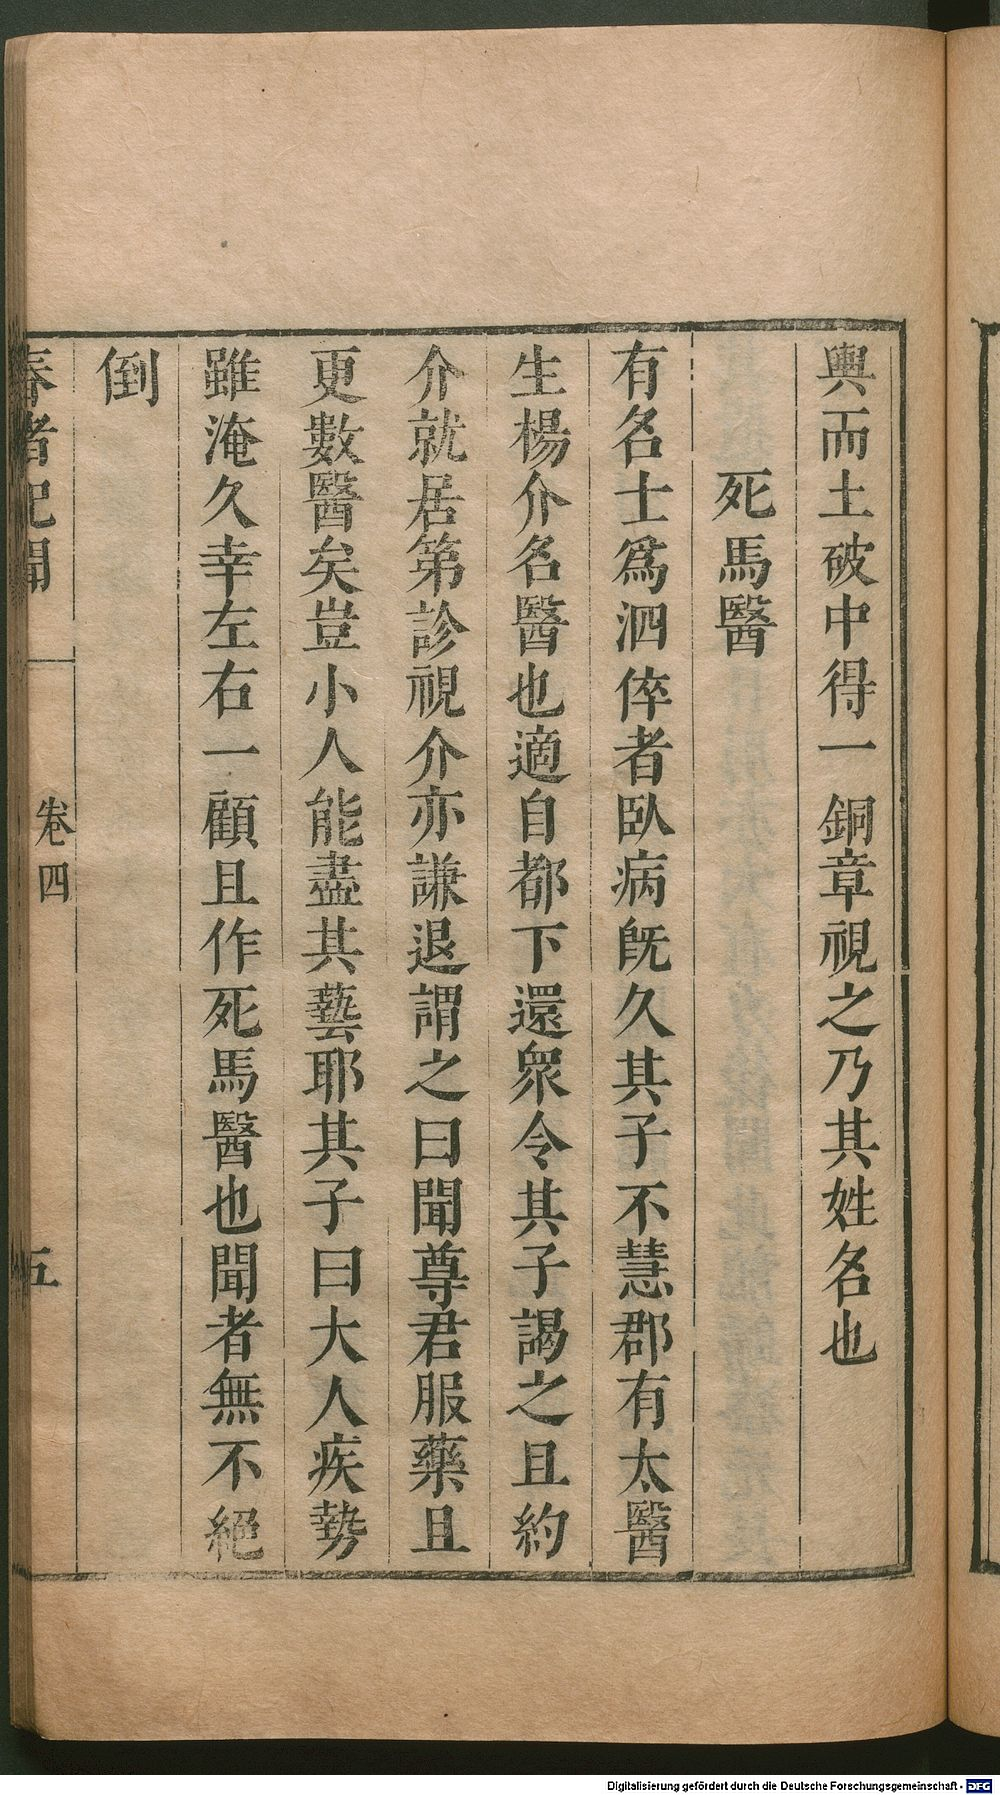 輿而土破中得一銅章視之乃其姓名也
死馬醫
有名士爲泗倅者臥病旣久其子不慧郡有太醫
生楊介名醫也適自都下還衆令其子謁之且約
介就居第診視介亦謙退謂之曰聞尊君服藥且
更數醫矣豈小人能盡其藝耶其子曰大人疾勢
雖淹久幸左右一顧且作死馬醫也聞者無不絕
倒
春渚紀聞 卷四 五
Digitalisierung gefördert durch die Deutsche Forschungsgemeinschaft - DFG